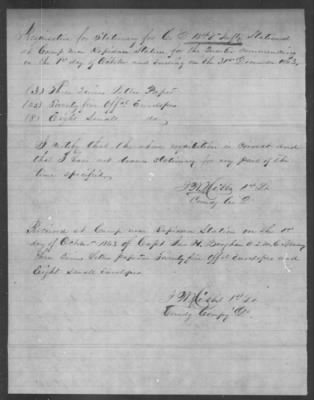 Requisition for Stationery for Co D Infty Stationed
at Camp near Rapidan Station for the Quarter commencing
on the 1st day of October and Ending on the 31st December 1863
(3) Three Quires Letter Paper
(25) Twenty five Offcl Envelopes
(8) Eight Small do
I certify that the above requisition is correct and
that I have not drawn Stationery for any part of the
time specified.
1st Lt
Comdg Co D.
Received at Camp near Rapidan Station on the 1st
day of October 1863 of Capt H.
three Quires Letter paper Twenty five Offcl Envelopes and
Eight Small Envelopes
1st Lt
Comdg Compy D.